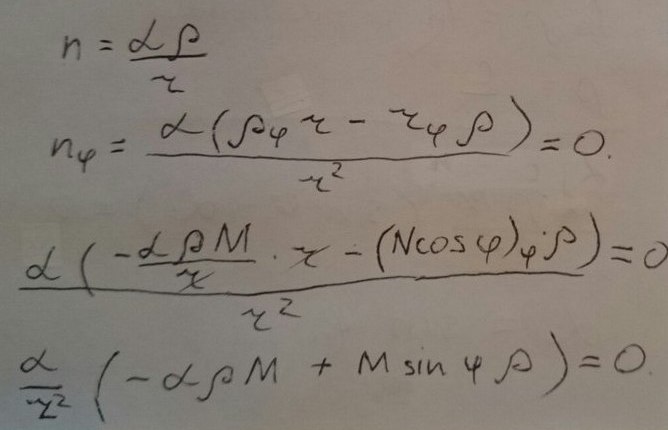 n = αρ / r
n_φ = α(ρ_φ r - r_φ ρ) / r² = 0.
α(-αρM / r · r - (N cos φ)_φ · ρ) / r² = 0
α / r² (-αρM + M sin φ ρ) = 0.